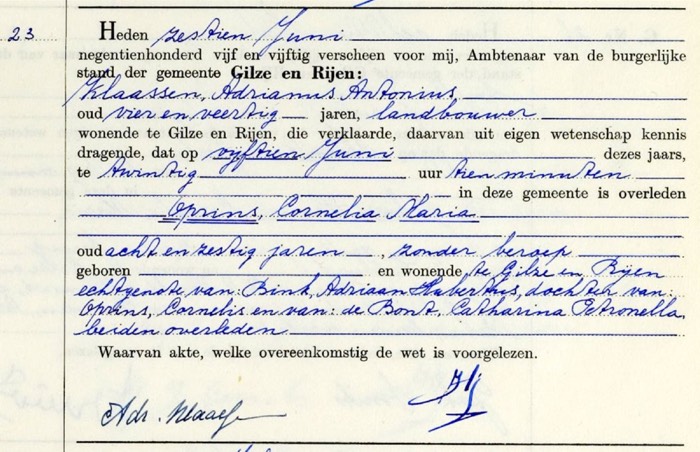 23
Heden zestien Juni
negentienhonderd vijf en vijftig verscheen voor mij, Ambtenaar van de burgerlijke
stand der gemeente Gilze en Rijen:
Klaassen, Adrianus Antonius
oud vier en veertig jaren, landbouwer
wonende te Gilze en Rijen, die verklaarde, daarvan uit eigen wetenschap kennis
dragende, dat op vijftien Juni dezes jaars,
te twintig uur tien minuten
in deze gemeente is overleden
Oprins, Cornelia Maria
oud acht en zestig jaren, zonder beroep
geboren en wonende te Gilze en Rijen
echtgenote van: Bink, Adriaan Hubertus, dochter van:
Oprins, Cornelis en van: de Bont, Catharina Petronella,
beiden overleden
Waarvan akte, welke overeenkomstig de wet is voorgelezen.
Adr. Klaassen